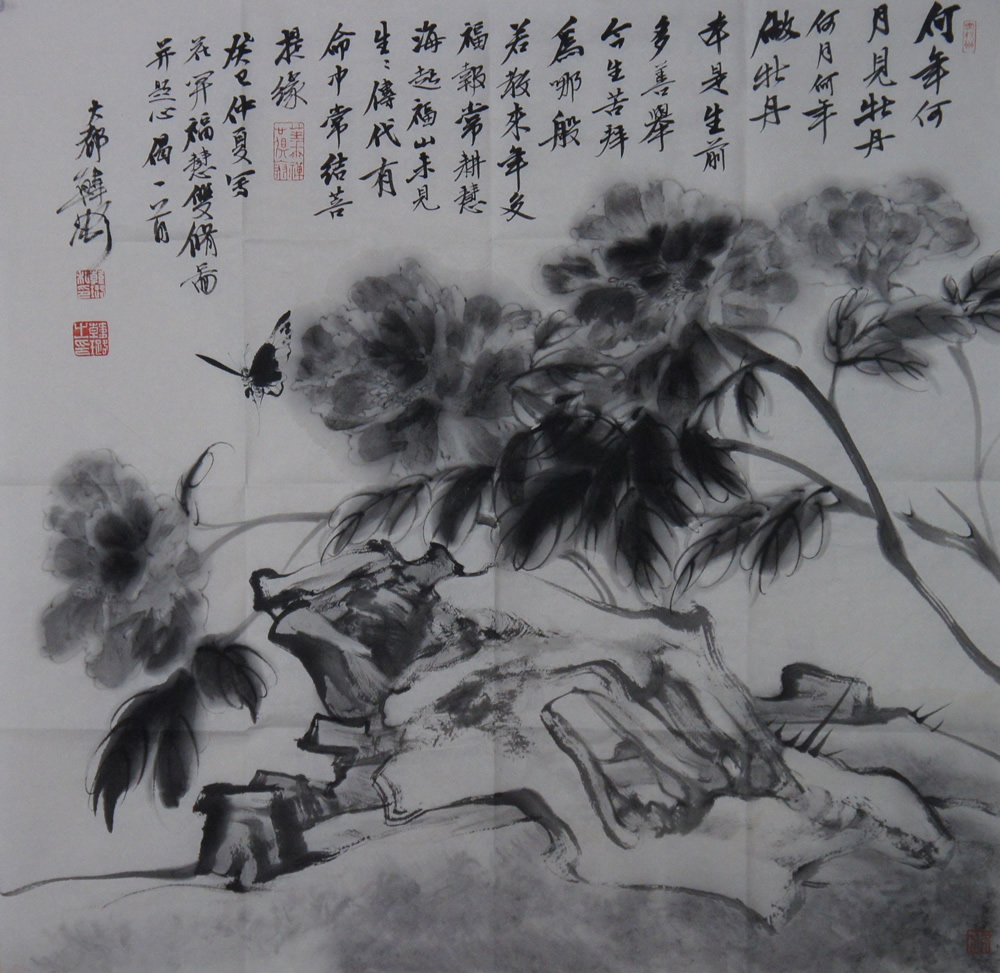 何年何
月見牡丹
何月何年
做牡丹
本是生前
多善舉
今生苦拜
為哪般
若教來年文
福報常耕慧
海起福山未見
生〻傳代有
命中常結菩
提緣
癸巳仲夏寫
花開福慧雙脩圖
并照心偈一首
大都